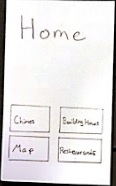 Home
Chimes
Building Hours
Map
Restaurants